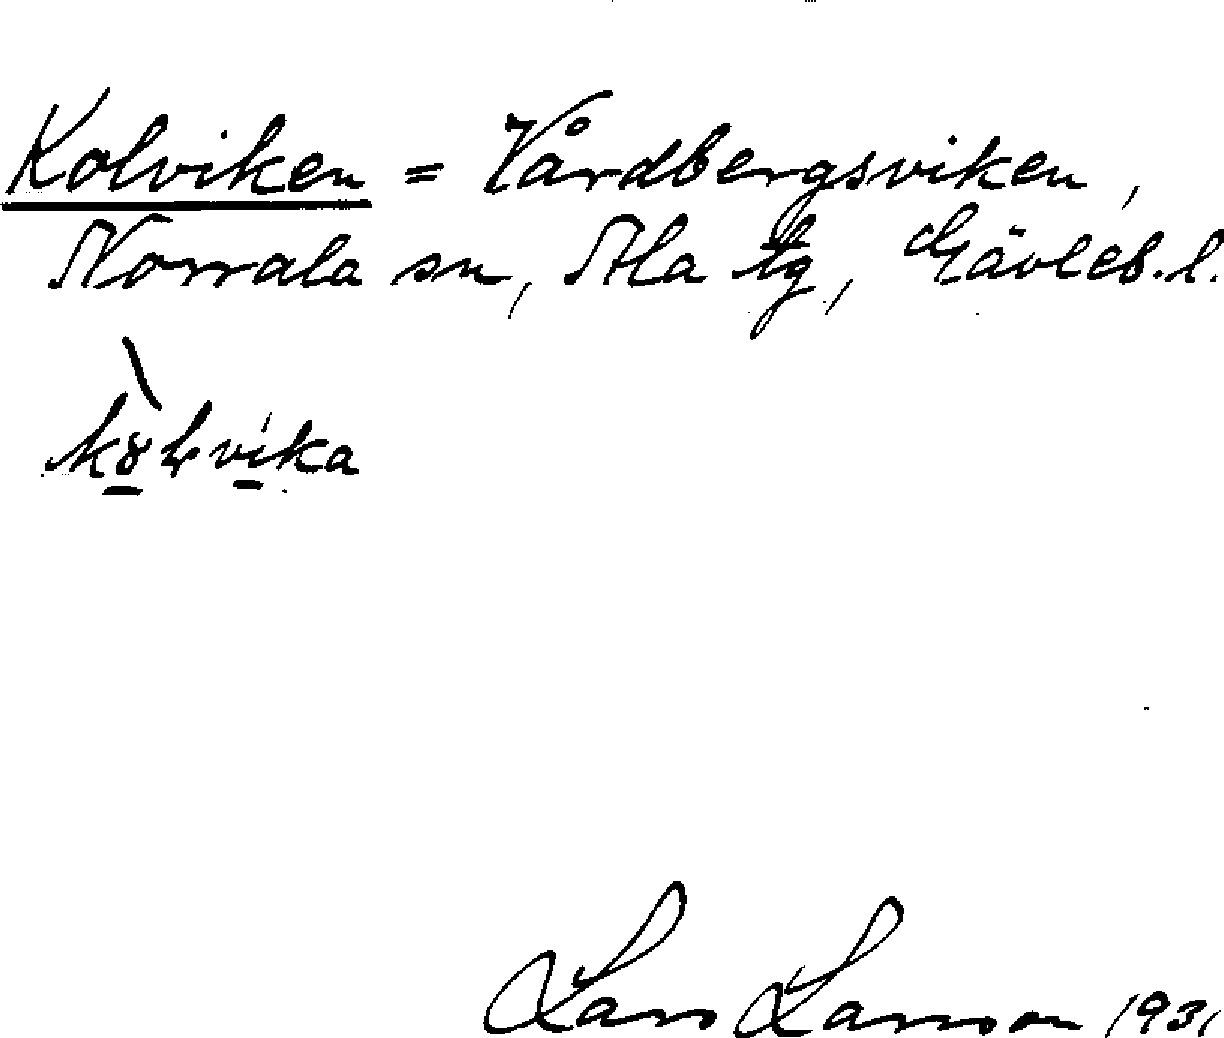 Kolviken = Vårdbergsviken,
Norrala sn, Ala tg, Gävleb. l.
Lars Larsson 1931